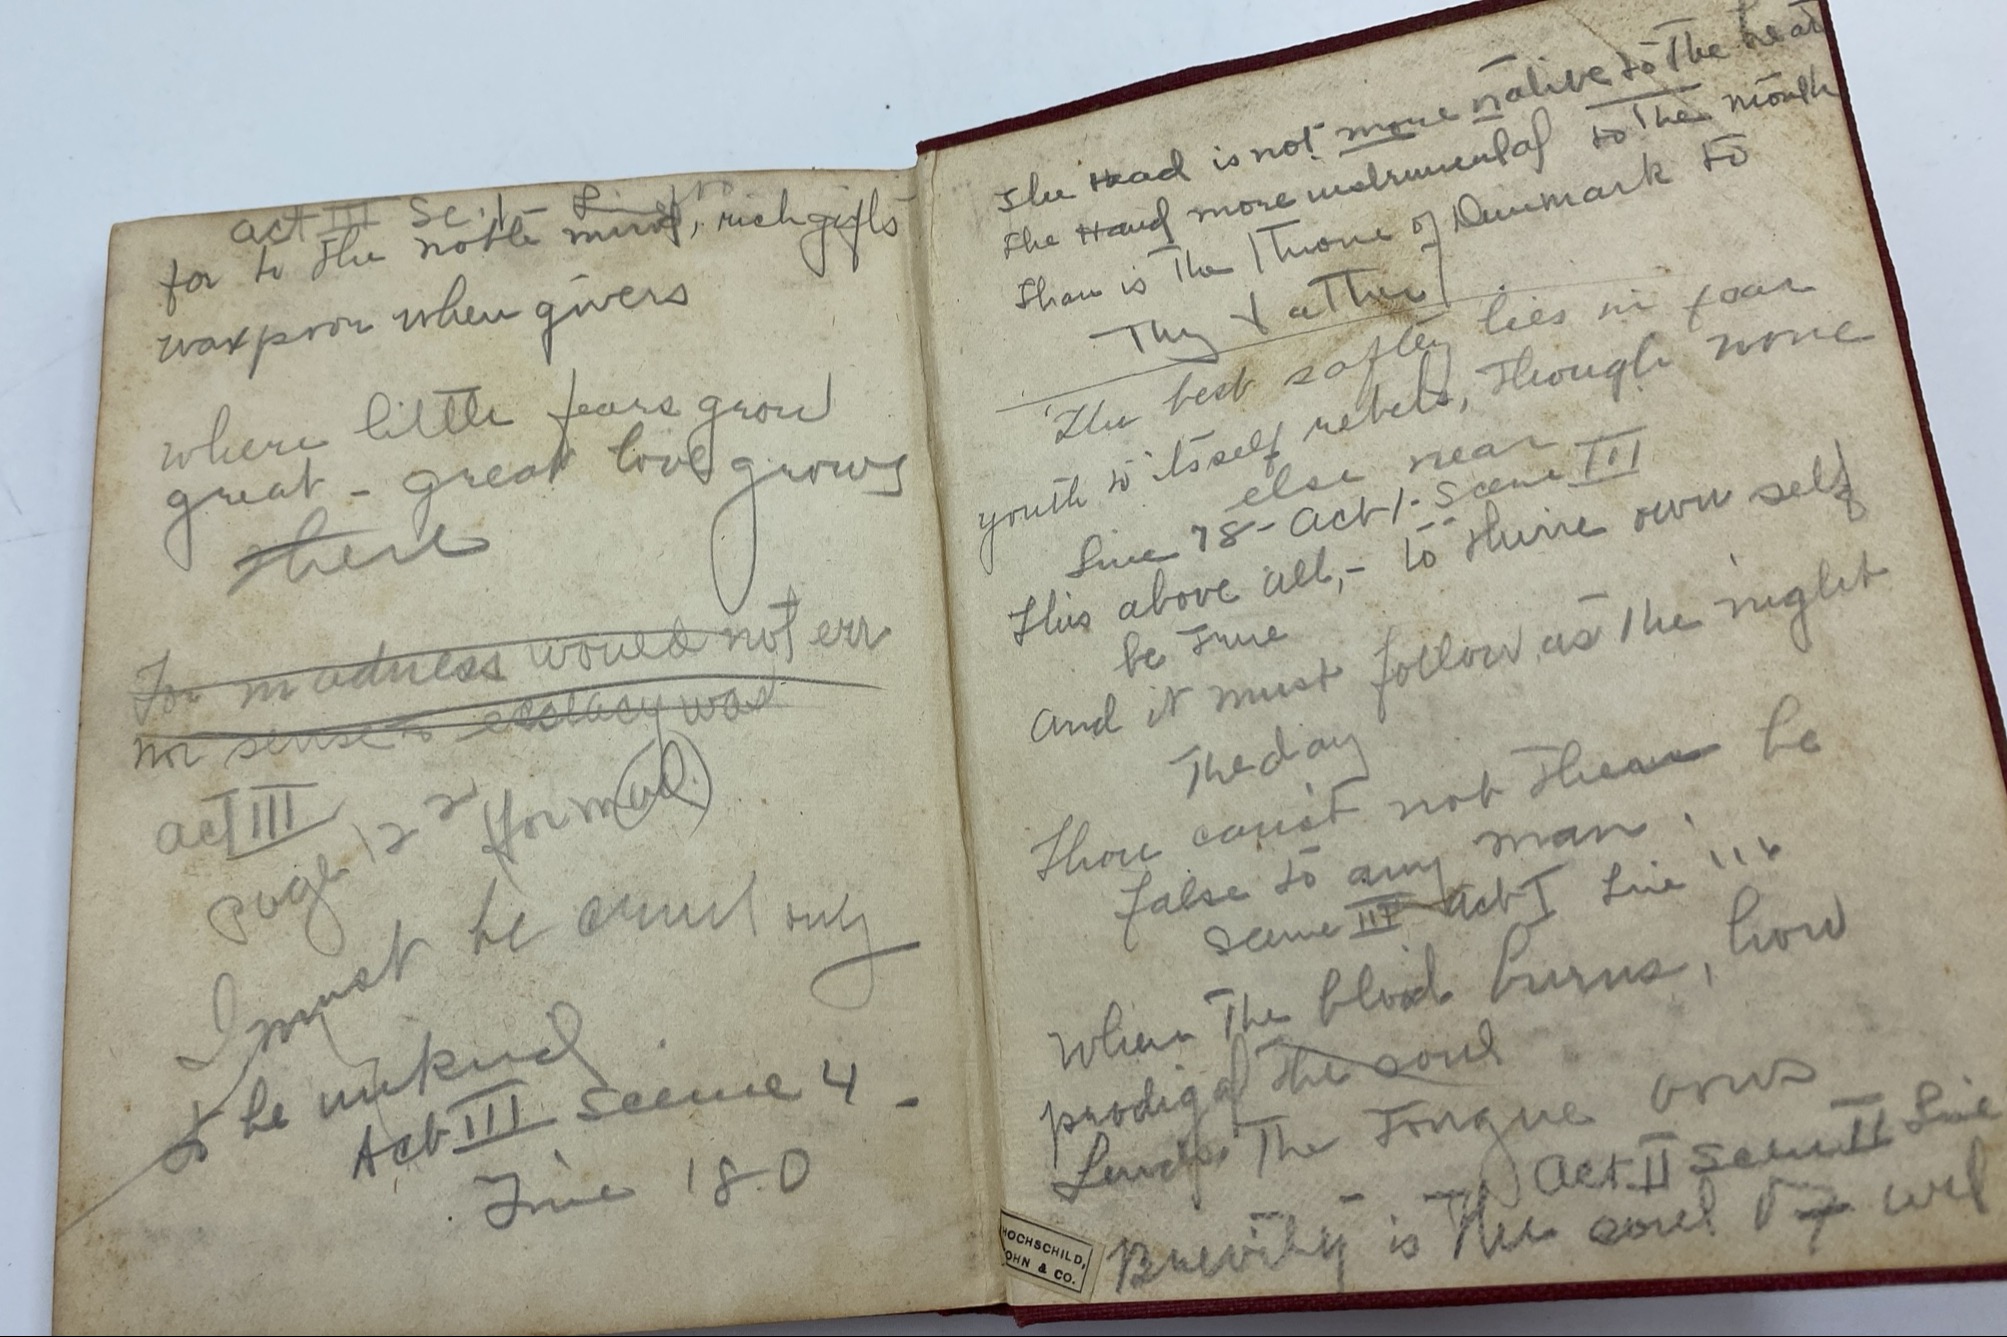 act III Sc. 1 - Line
for to the noble mind, rich gifts
wax poor when givers
where little fears grow
great - great love grows
there
For madness would not err
nor sense to ecstacy was
act III
page 122 (formal)
I must be cruel only
to be unkind
Act III Scene 4 -
Line 180
The Head is not more native to the heart
The Hand more instrumental to the mouth
Than is the Throne of Denmark to
Thy Father
The best saftey lies in fear
youth to itsself rebels, though none
else near
Line 78 - Act 1 - Scene III
This above all, - to thine own self
be true
And it must follow, as the night
The day
Thou canst not then be
false to any man.
Scene III Act I Line
When the blood burns, how
prodigal the soul
Lends the Tongue vows
Act II Scene II Line
Brevity is the soul of wit
HOCHSCHILD,
OHN & CO.